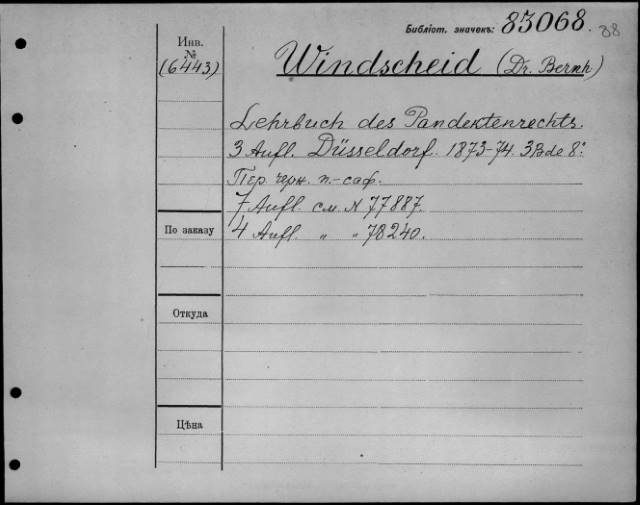 Библіот. значекъ: 83068. 38
Инв.
№
(6443)
Windscheid (Dr. Bernh)
Lehrbuch des Pandektenrechts.
3 Aufl. Düsseldorf. 1873-74. 3 Bde 8º.
Пер. черн. п.-саф.
7 Aufl. см. N 77887.
По заказу
4 Aufl. " " 78240.
Откуда
Цѣна